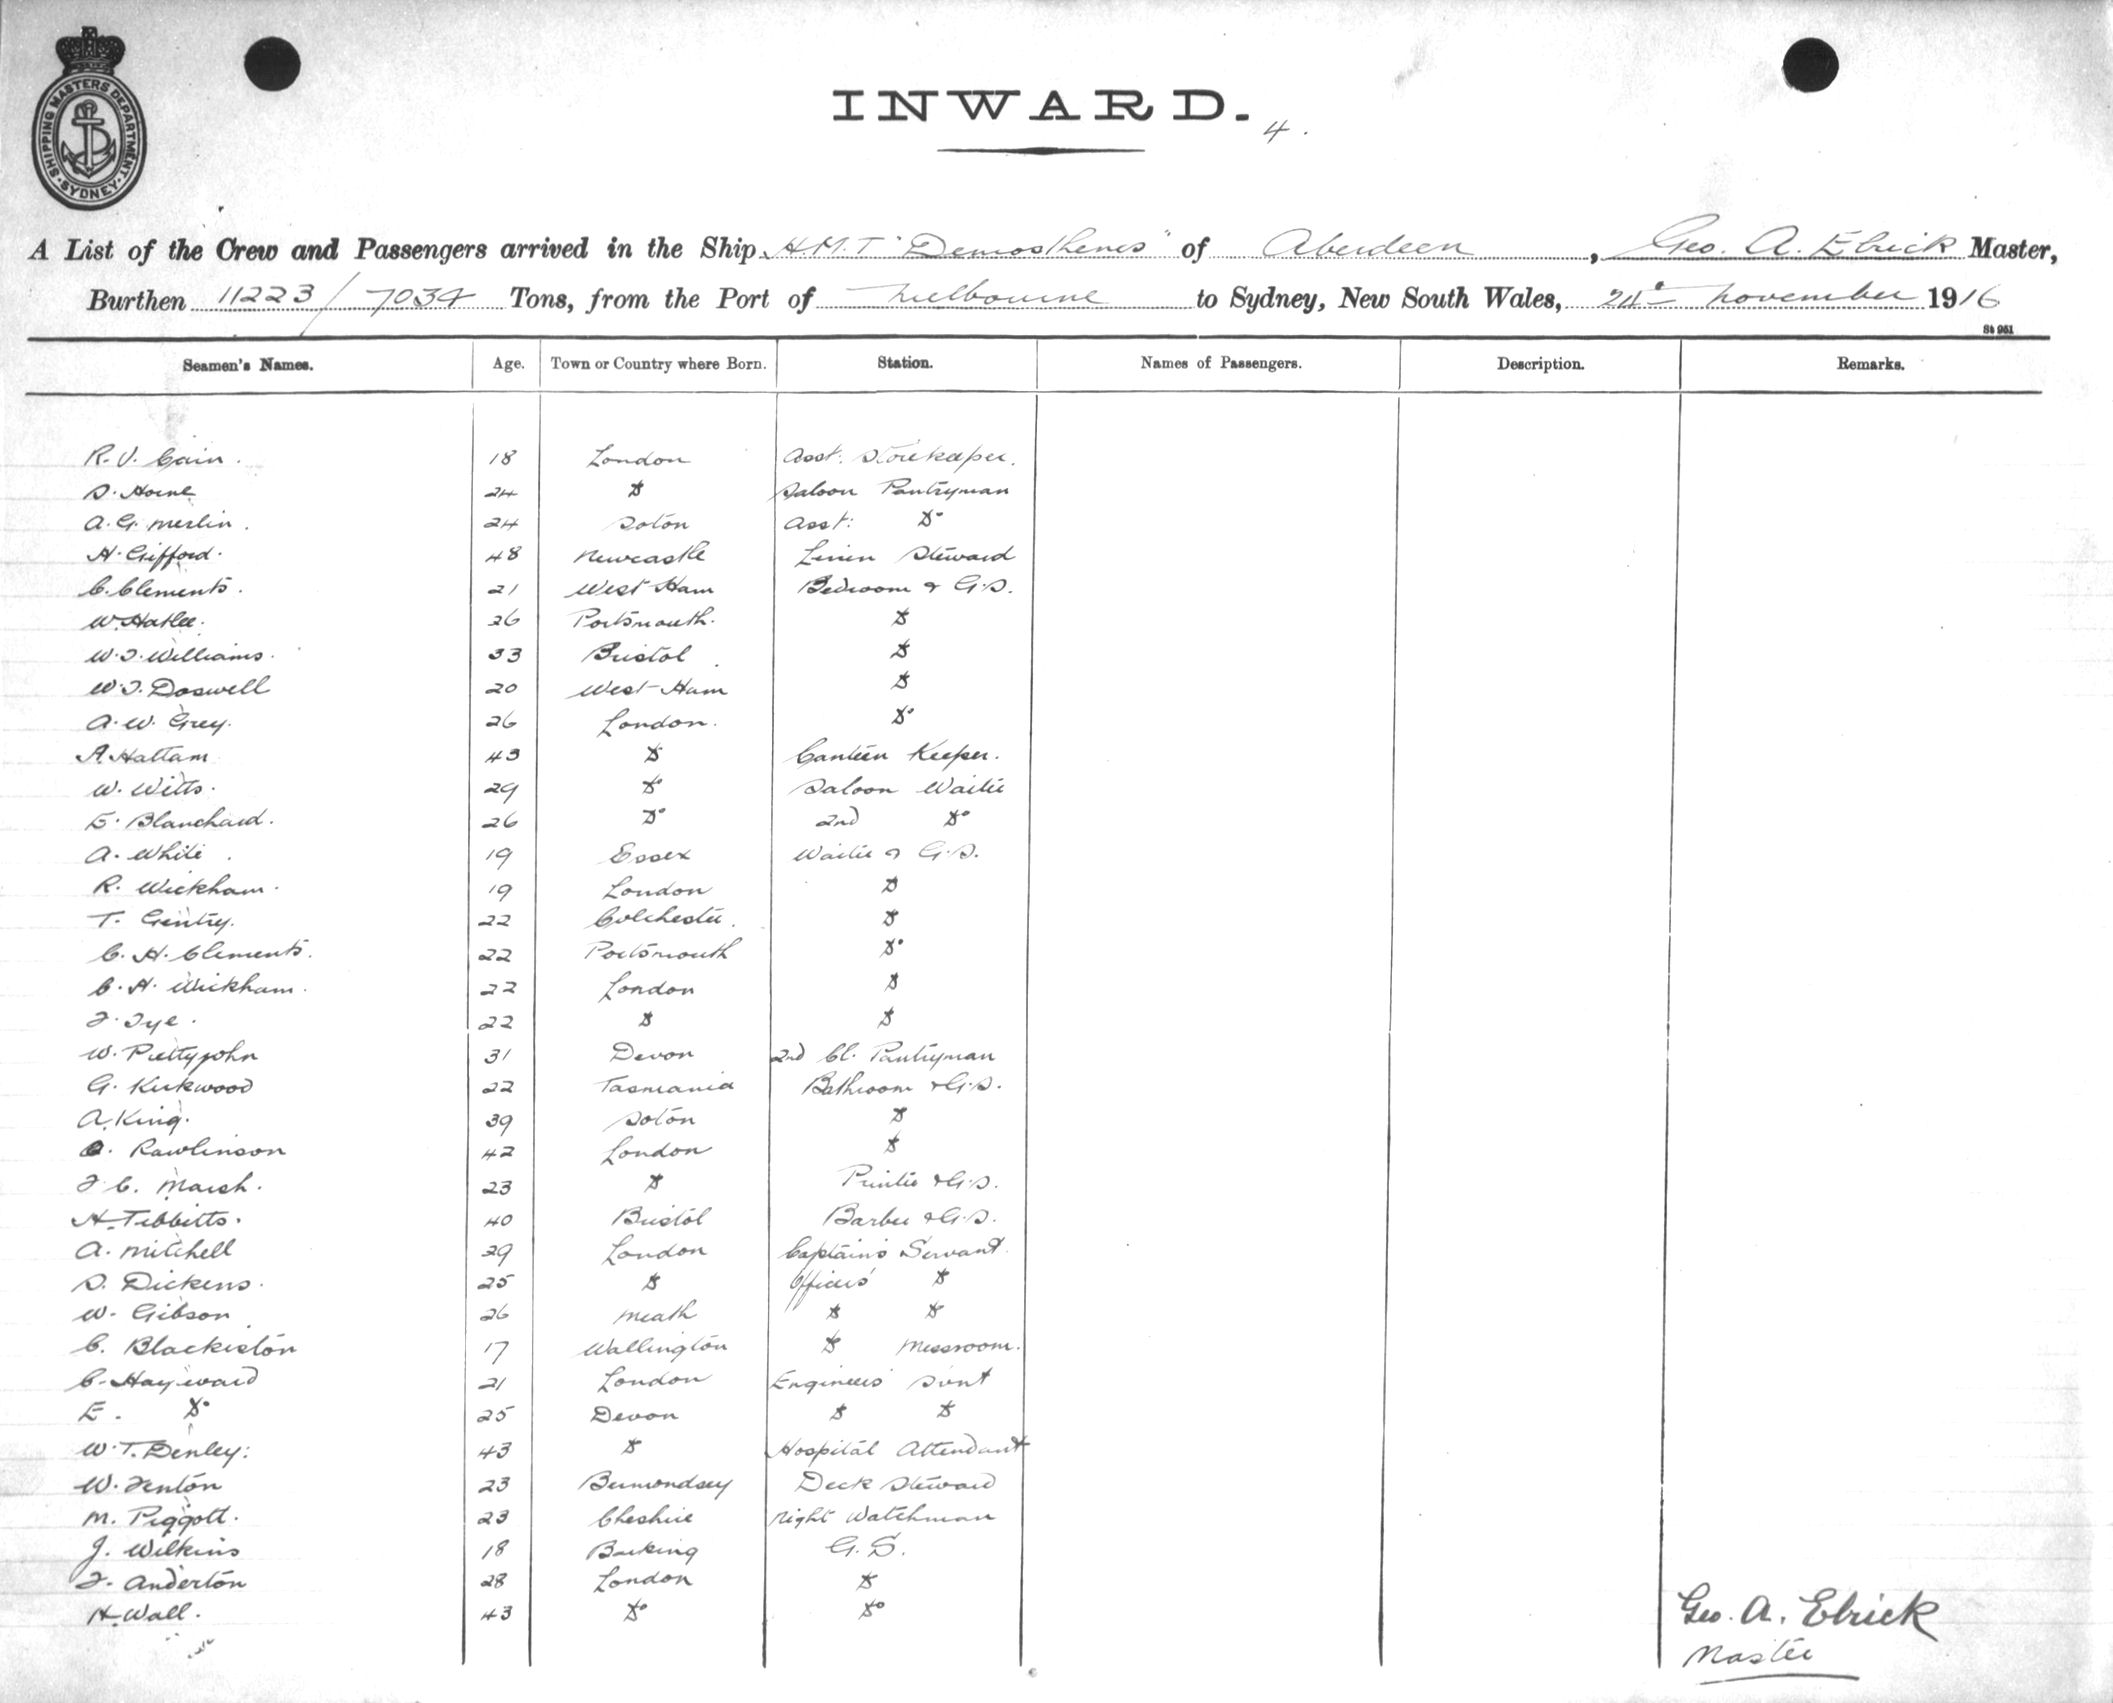 SHIPPING MASTERS DEPARTMENT
SYDNEY
INWARD.
4.
A List of the Crew and Passengers arrived in the Ship H.M.T "Demosthenes" of Aberdeen, Geo. A. Elrick Master,
Burthen 11223/7034 Tons, from the Port of Melbourne to Sydney, New South Wales, 24th November 1916
St 951
Seamen's Names. Age. Town or Country where Born. Station. Names of Passengers. Description. Remarks.
R. V. Cain. 18 London Asst. Storekeeper.
S. Horne 24 Do Saloon Pantryman
A. G. Merlin. 24 Soton Asst: Do
H. Gifford. 48 Newcastle Linen Steward
C. Clements. 21 West Ham Bedroom & G.S.
W. Hatlee. 26 Portsmouth. Do
W. J. Williams. 33 Bristol Do
W. J. Doswell 20 West Ham Do
A. W. Grey. 26 London. Do
A. Hattam 43 Do Canteen Keeper.
W. Witts. 29 Do Saloon Waiter
E. Blanchard. 26 Do 2nd Do
A. White. 19 Essex Waiter & G.S.
R. Wickham. 19 London Do
T. Gentry. 22 Colchester. Do
C. H. Clements. 22 Portsmouth Do
C. H. Wickham. 22 London Do
F. Tye. 22 Do Do
W. Prettyjohn 31 Devon 2nd Cl. Pantryman
G. Kirkwood 22 Tasmania Bathroom & G.S.
A. King. 39 Soton Do
Rawlinson 42 London Do
F. C. Marsh. 23 Do Printer & G.S.
H. Tibbitts. 40 Bristol Barber & G.S.
A. Mitchell 29 London Captain's Servant.
S. Dickens. 25 Do Officers' Do
W. Gibson 26 Meath Do Do
C. Blackiston 17 Wallington Do Messroom.
C. Hayward 21 London Engineers Svnt
E. Do 25 Devon Do Do
W. T. Denley. 43 Do Hospital Attendant
W. Fenton 23 Bermondsey Deck Steward
M. Piggott. 23 Cheshire Night Watchman
J. Wilkins 18 Barking G.S.
F. Anderton 28 London Do
H. Wall. 43 Do Do
Geo. A. Elrick
Master